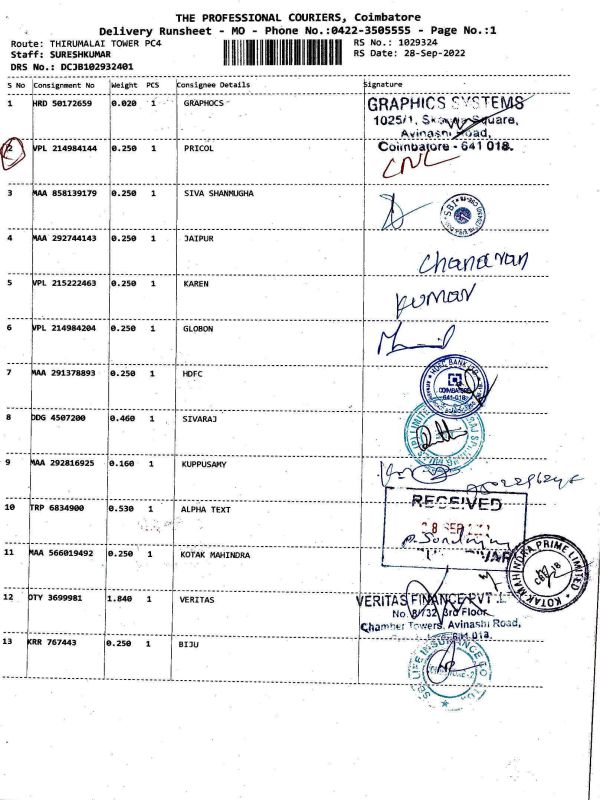 THE PROFESSIONAL COURIERS, Coimbatore
Delivery Runsheet - MO - Phone No.:0422-3505555 - Page No.:1
Route: THIRUMALAI TOWER PC4 RS No.: 1029324
Staff: SURESHKUMAR RS Date: 28-Sep-2022
DRS No.: DCJB102932401
S No Consignment No Weight PCS Consignee Details Signature
1 HRD 50172659 0.020 1 GRAPHOCS
GRAPHICS SYSTEMS
1025/1, Square,
Avinashi Road,
Coimbatore - 641 018.
2 VPL 214984144 0.250 1 PRICOL
CNC
3 MAA 858139179 0.250 1 SIVA SHANMUGHA
SBI
4 MAA 292744143 0.250 1 JAIPUR
5 VPL 215222463 0.250 1 KAREN
KUMAR
6 VPL 214984204 0.250 1 GLOBON
7 MAA 291378893 0.250 1 HDFC
HDFC BANK LTD
COIMBATORE
641-018
8 DDG 4507200 0.460 1 SIVARAJ
9 MAA 292816925 0.160 1 KUPPUSAMY
10 TRP 6834900 0.530 1 ALPHA TEXT
RECEIVED
28 SEP
11 MAA 566019492 0.250 1 KOTAK MAHINDRA
KOTAK MAHINDRA PRIME LIMITED
CBE-18
12 OTY 3699981 1.840 1 VERITAS
VERITAS FINANCE PVT L
No. 8/732, 3rd Floor
Chamber Towers, Avinashi Road,
641 018
13 KRR 767443 0.250 1 BIJU
LIFE INSURANCE CO